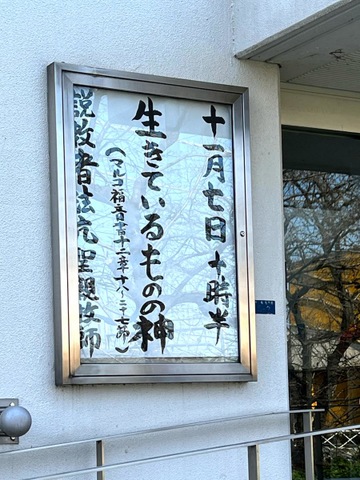 十一月七日 十時半
生きているものの神
(マルコ福音書十二章十八〜二十七節)
説教者 法亢聖親牧師